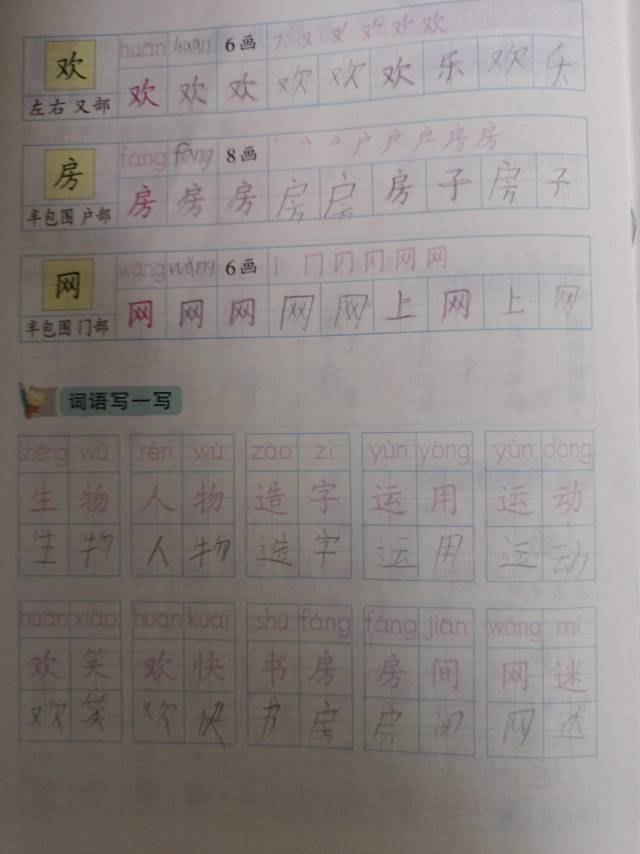 欢 huān huān 6画 フ 又 欢 欢
左右 又部 欢 欢 欢 欢 欢 欢 乐 欢 乐
房 fáng fáng 8画 房 房
半包围 户部 房 房 房 房 房 房 子 房 子
网 wǎng wǎng 6画 丨 冂 网 网
半包围 冂部 网 网 网 网 网 上 网 上 网
词语写一写
shēng wù rén wù zào zì yùn yòng yùn dòng
生 物 人 物 造 字 运 用 运 动
生 物 人 物 造 字 运 用 运 动
huān xiào huān kuài shū fáng fáng jiān wǎng mí
欢 笑 欢 快 书 房 房 间 网 迷
欢 笑 欢 快 书 房 房 间 网 迷